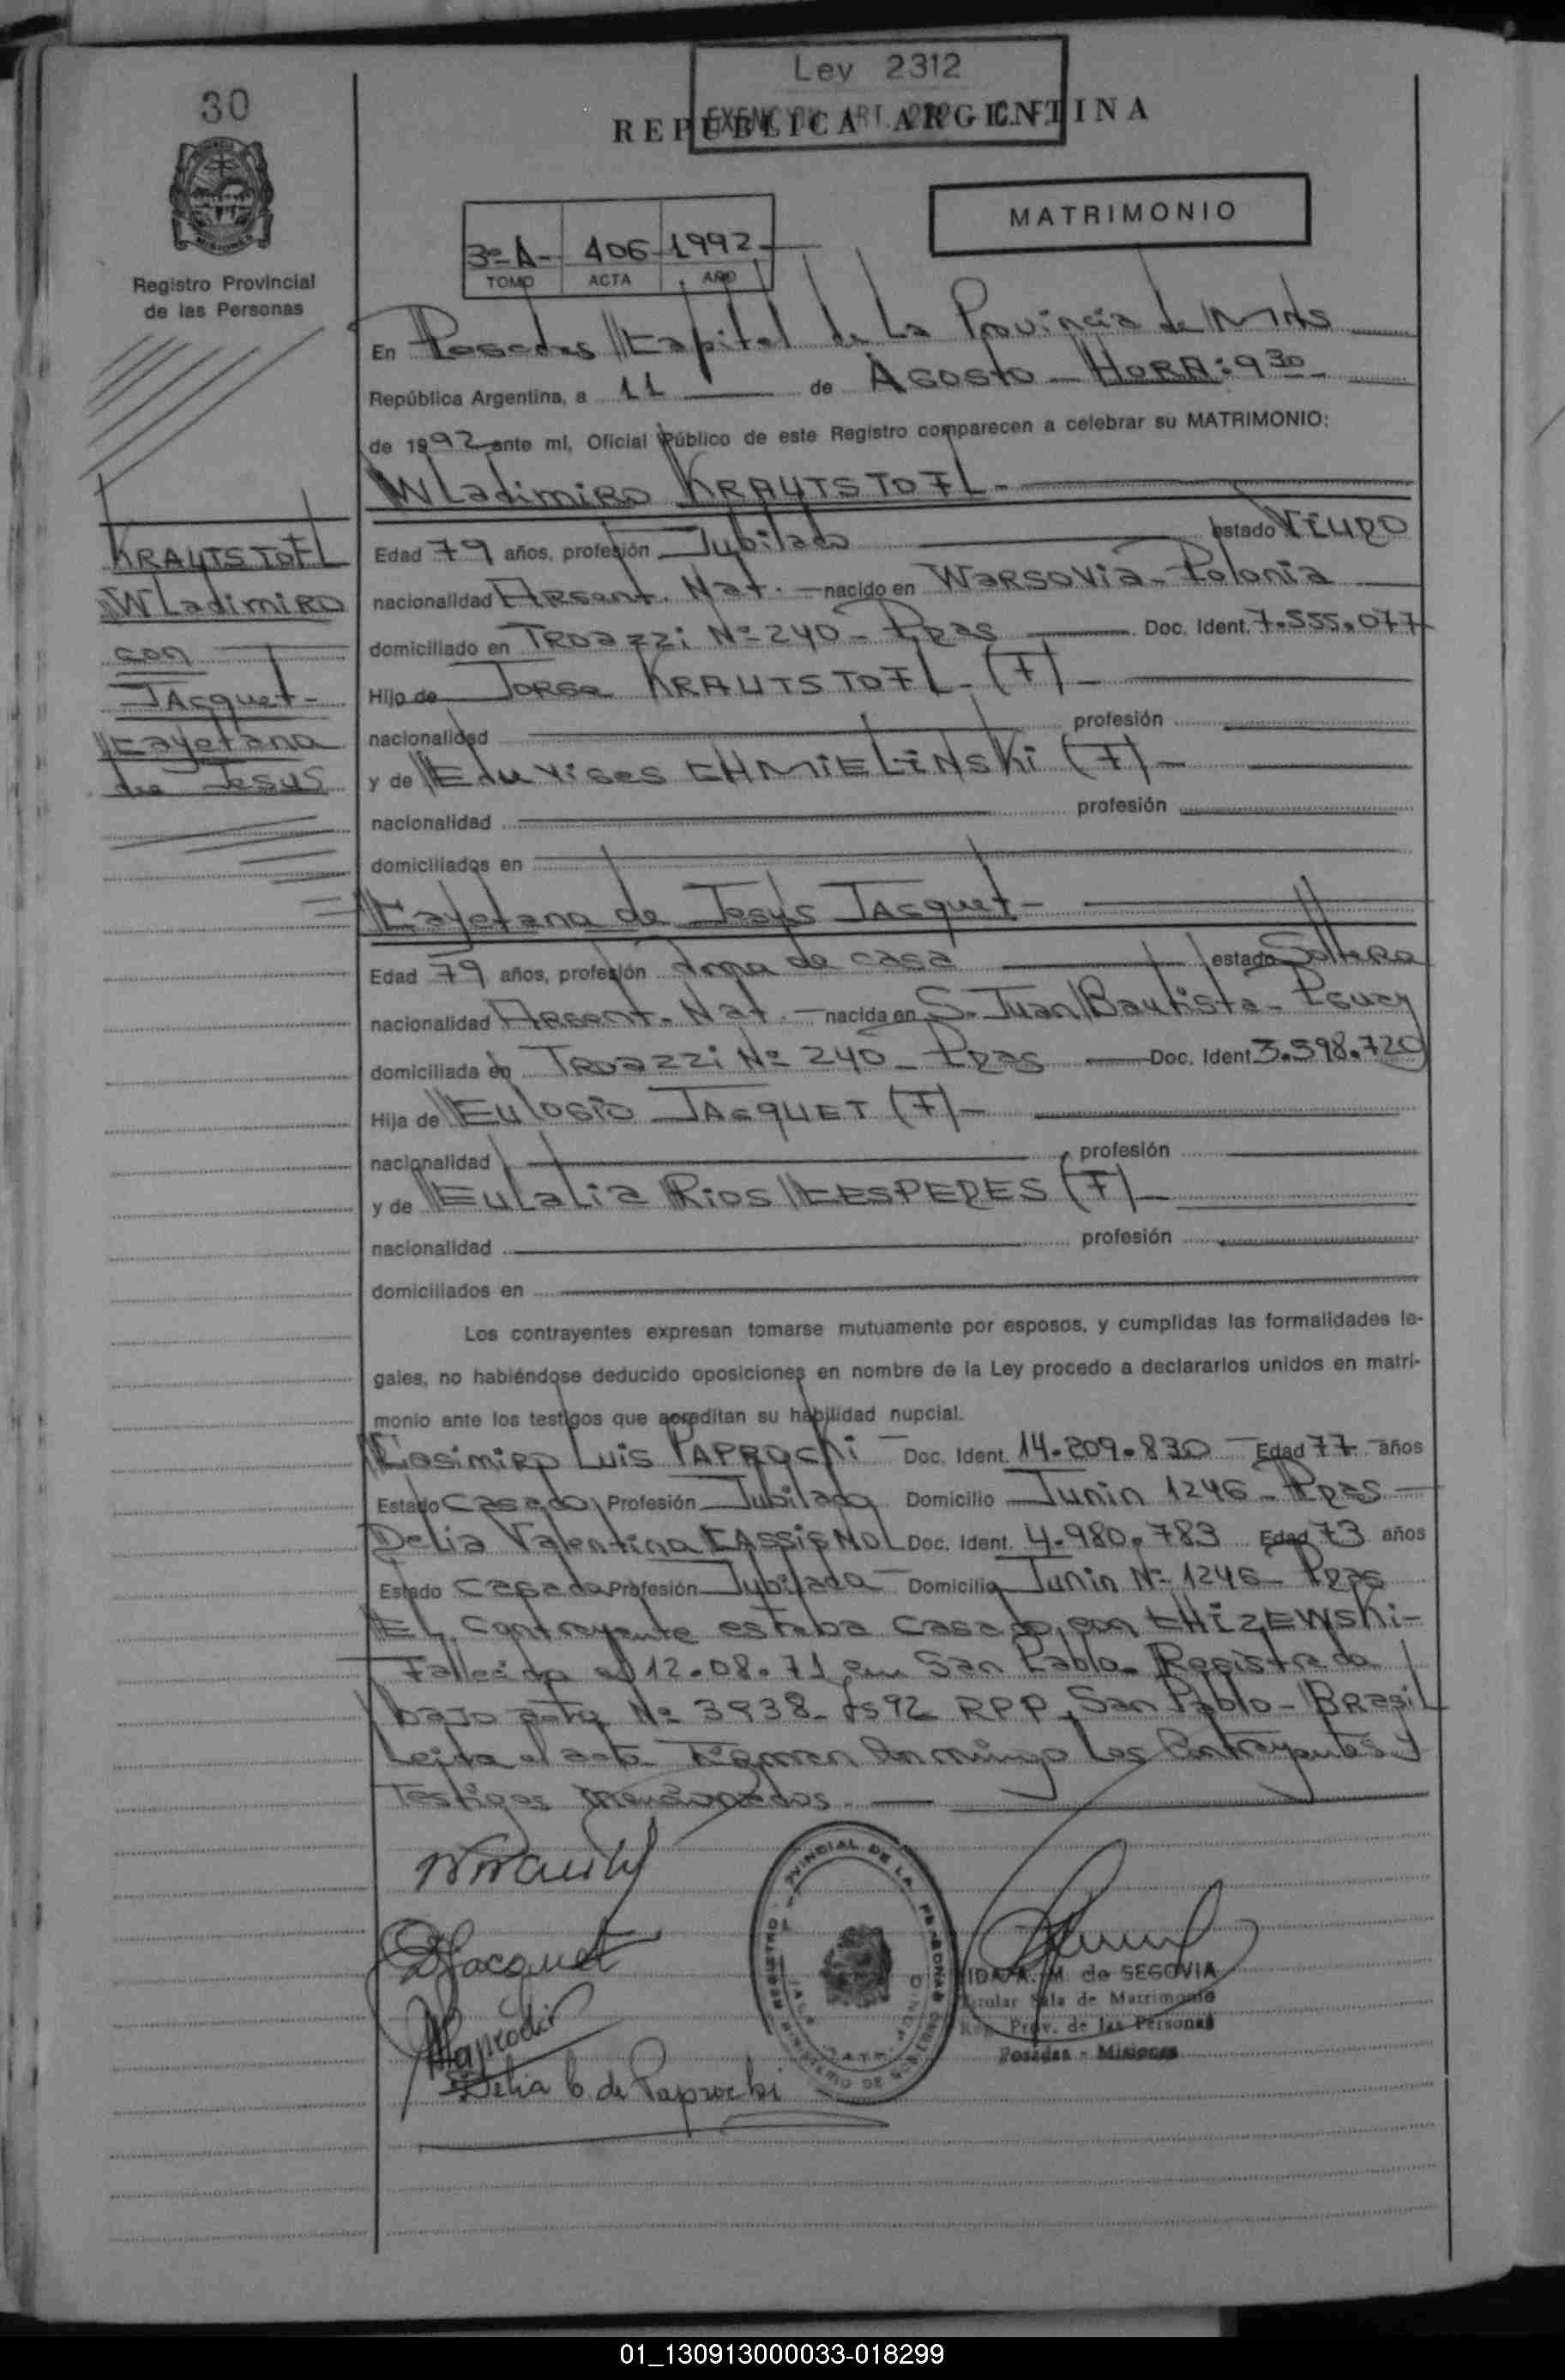 30
Ley 2312
REPUBLICA ARGENTINA
MATRIMONIO
3º-A- 406-1992-
TOMO ACTA AÑO
Registro Provincial
de las Personas
En Posadas Capital de La Provincia de Mnes
República Argentina, a 11 de Agosto - HORA: 9 30 -
de 1992 ante mí, Oficial Público de este Registro comparecen a celebrar su MATRIMONIO:
WLadimiRO KRAUTSTOFL-
KRAUTSTOFL
WLadimiRO
con
JAcquet-
Cayetana
de Jesus
Edad 79 años, profesión Jubilado estado Viudo
nacionalidad Argent. Nat. - nacido en Warsovia - Polonia
domiciliado en TRoazzi Nº 240 - Pdas Doc. Ident. 7.555.077
Hijo de Jorge KRAUTSTOFL - (F) -
nacionalidad profesión
y de Eduviges CHMIELiNSKi (F) -
nacionalidad profesión
domiciliados en
Cayetana de Jesus JAcquet-
Edad 79 años, profesión Ama de casa estado Soltera
nacionalidad Argent. Nat. - nacida en S. Juan Bautista - Pguay
domiciliada en TRoazzi Nº 240 - Pdas Doc. Ident 3.598.720
Hija de Eulogio JAcQUET (F) -
nacionalidad profesión
y de Eulalia Rios CESPEDES (F) -
nacionalidad profesión
domiciliados en
Los contrayentes expresan tomarse mutuamente por esposos, y cumplidas las formalidades le-
gales, no habiéndose deducido oposiciones en nombre de la Ley procedo a declararlos unidos en matri-
monio ante los testigos que acreditan su habilidad nupcial.
Casimiro Luis PAPROcki Doc. Ident. 14.209.830 Edad 77 años
Estado Casado Profesión Jubilado Domicilio Junin 1246 - Pdas
Delia Valentina CASSIGNOL Doc. Ident. 4.980.783 Edad 73 años
Estado Casada Profesión Jubilada Domicilio Junin Nº 1246 - Pdas
EL contrayente estaba casado con CHIZEWSKi-
Fallecida el 12.08.71 en San Pablo. Registrada
bajo acta Nº 3938 - fs 92 RPP, San Pablo - Brasil
Leida el acta Firman conmigo los Contrayentes y
Testigos mencionados.
Jacquet
Paprocki
Delia C. de Paprocki
IDA A. M. de SEGOVIA
Titular Sala de Matrimonio
Reg. Prov. de las Personas
Posadas - Misiones
01_130913000033-018299